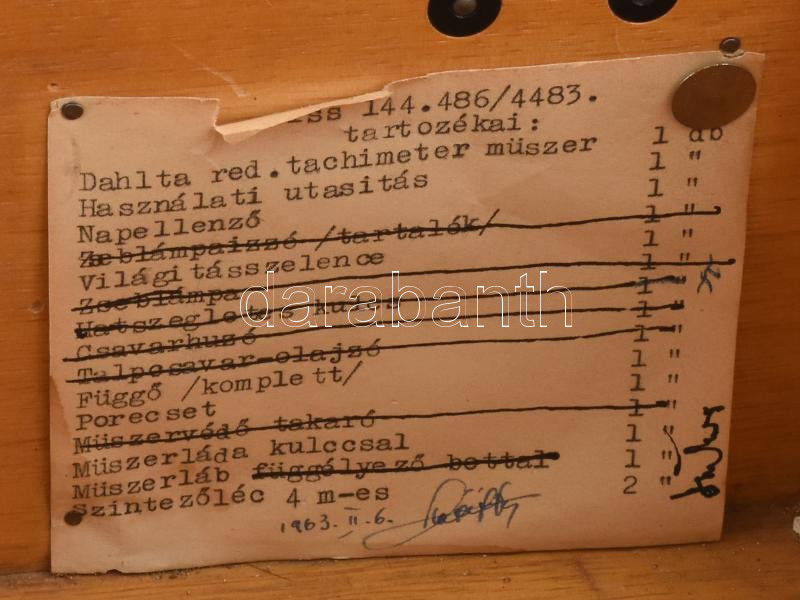 144.486/4483.
tartozékai:
Dahlta red.tachimeter müszer 1 db
Használati utasitás 1 "
Napellenző 1 "
Zseblámpaizzó /tartalék/ 1 "
Világitásszelence 1 "
Zseblámpa 1 "
Hatszegletes kulcs 1 "
Csavarhuzó 1 "
Talpcsavar-olajzó 1 "
Függő /komplett/ 1 "
Porecset 1 "
Müszervédő takaró 1 "
Müszerláda kulccsal 1 "
Müszerláb függélyező bottal 1 "
Szintezőléc 4 m-es 2 "
1963. II. 6.
darabanth